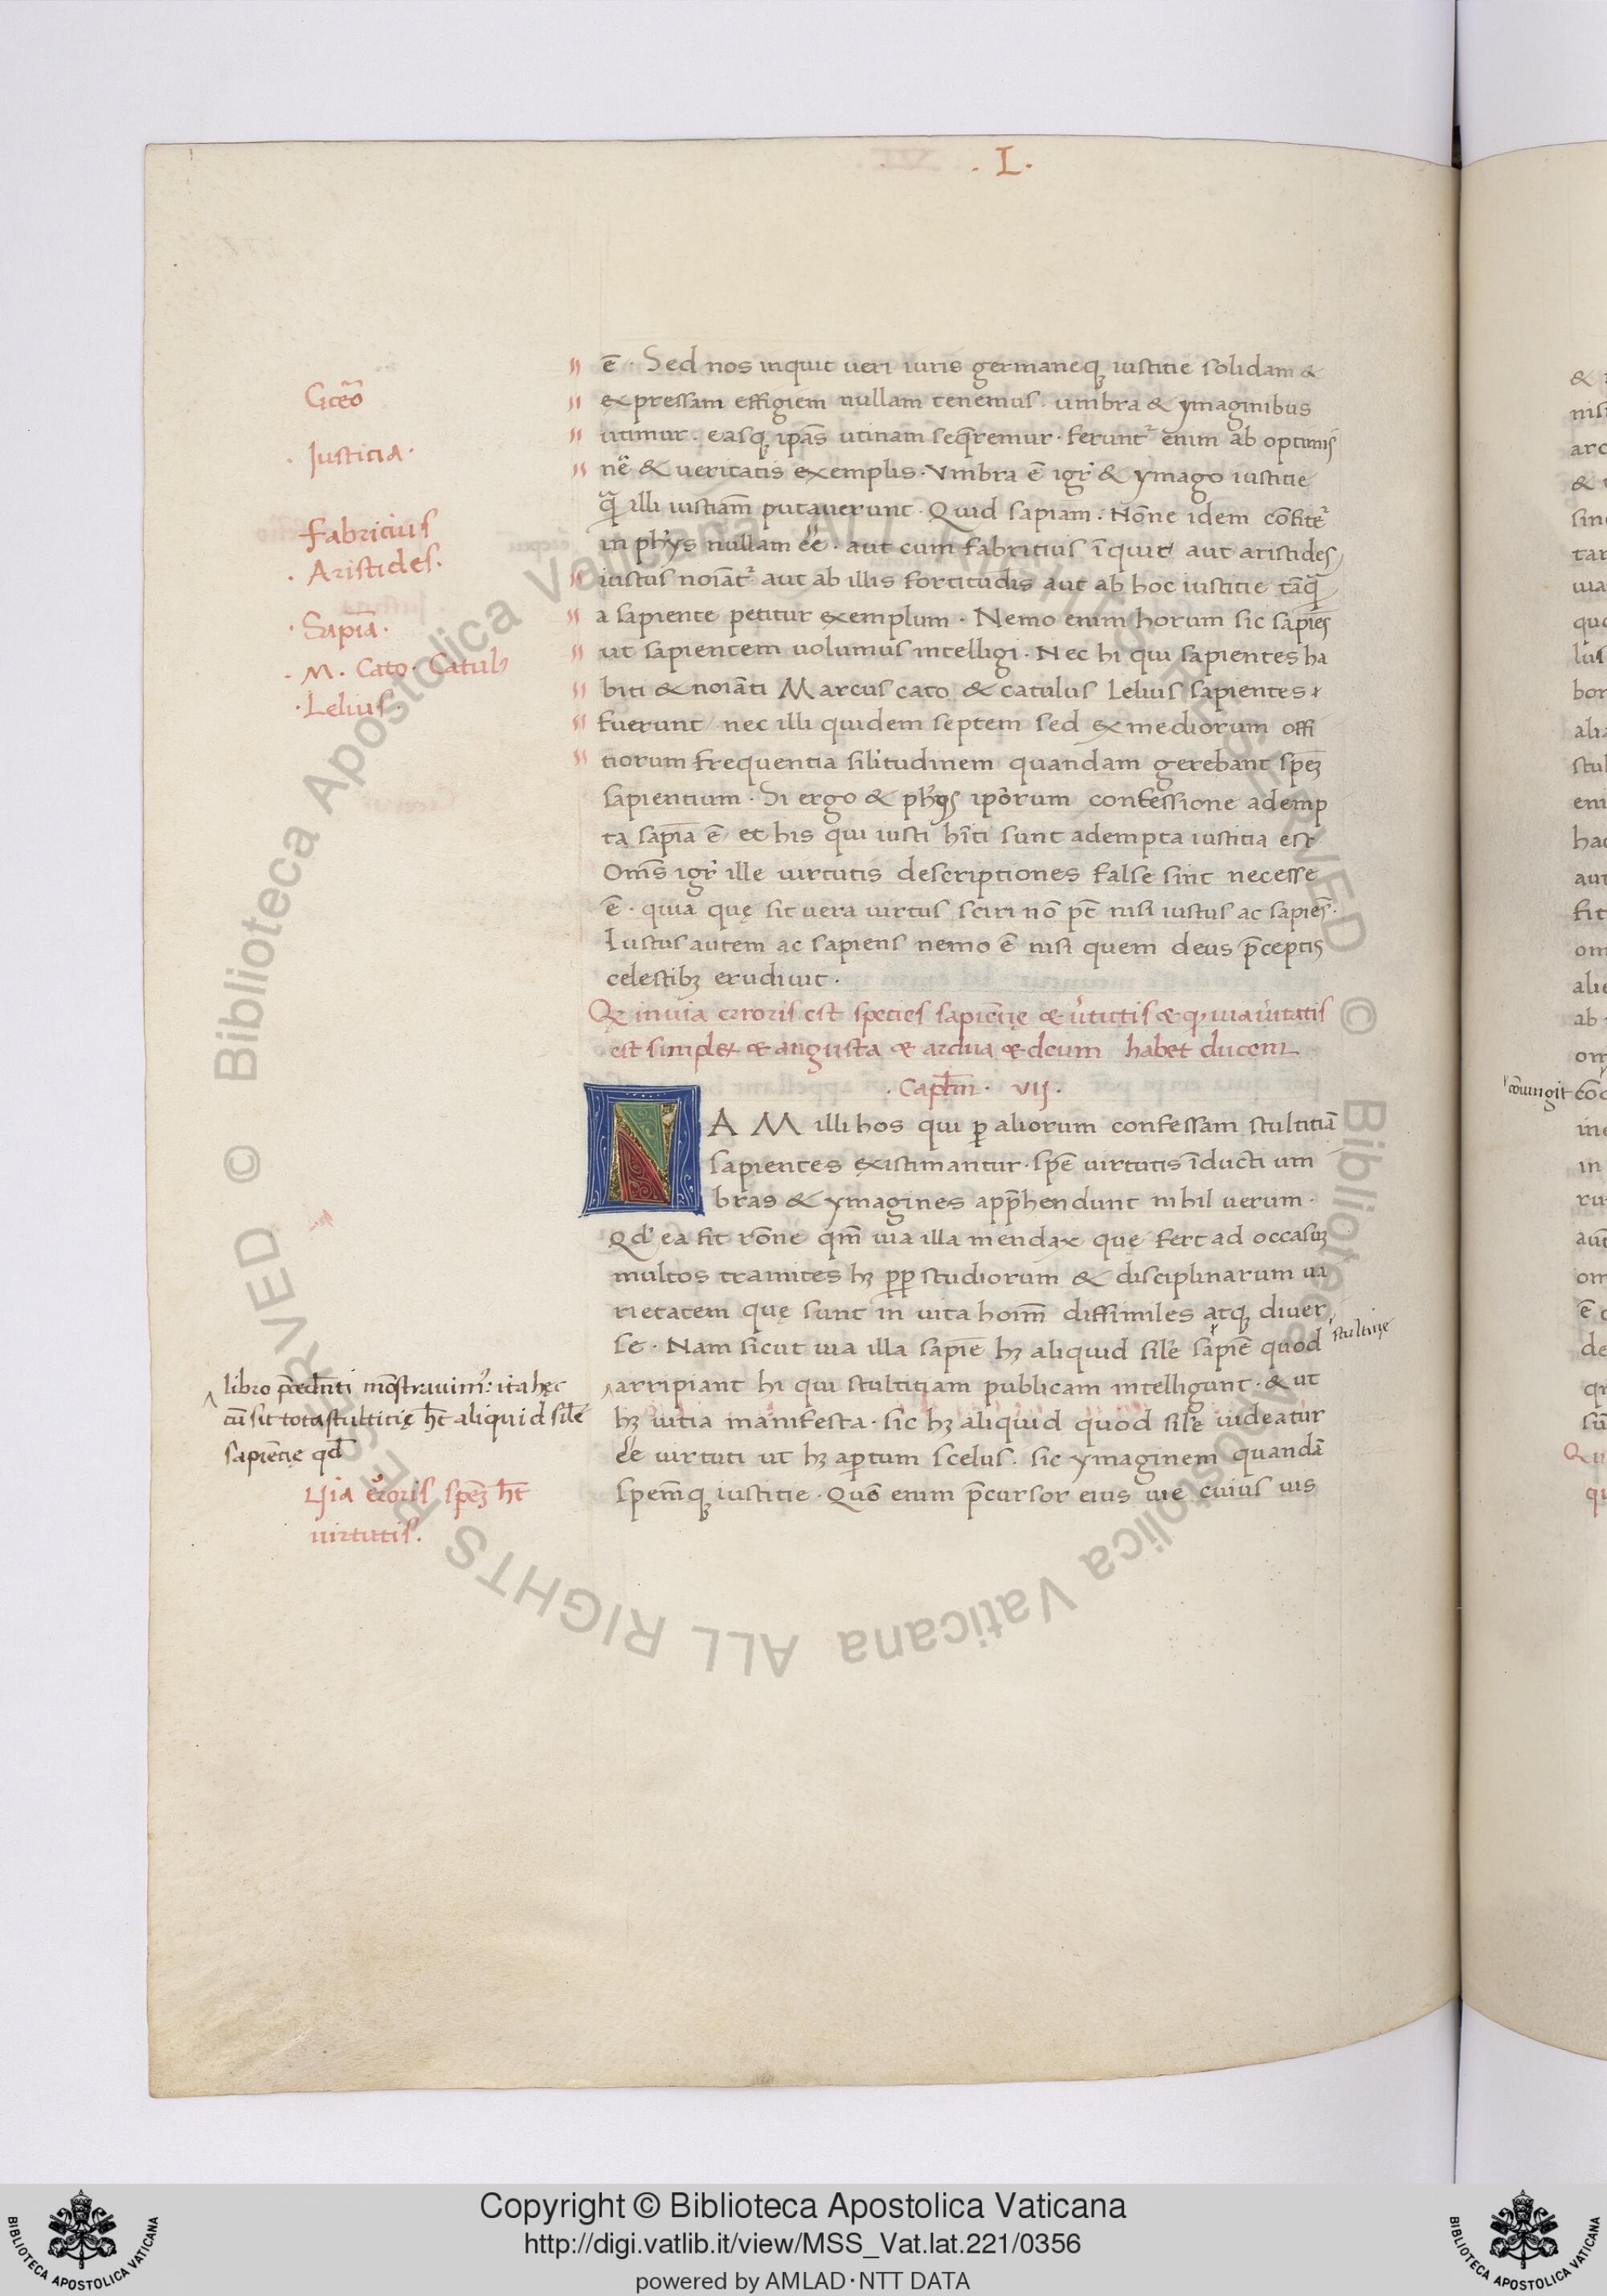 . L .
ē . Sed nos inquit ueri iuris germaneq; iustitie solidam &
expressam effigiem nullam tenemus . umbra & ymaginibus
utimur . easq; ip̄as utinam seq̄remur . feruntr̄ enim ab optimis
nē & ueritatis exemplis . Vmbra ē igr̄ & ymago iustitie
q̄ illi iustiam̄ putauerunt . Quid sapiam . Nōne idem cōfiter̄
in ph̄ys nullam ēē . aut cum fabritius īquit aut aristides
iustus noīat̄ aut ab illis fortitudīs aut ab hoc iustitie tāq̄
a sapiente petitur exemplum . Nemo enim horum sic sapiēs
ut sapientem uolumus intelligi . Nec hi qui sapientes ha
biti & noīati Marcus cato & catulus Lelius sapientes
fuerunt nec illi quidem septem sed ex mediorum offi
tiorum frequentia sil̄itudinem quandam gerebant sp̄ez
sapientium . Si ergo & ph̄ys ip̄orum confessione ademp
ta sapīa ē et his qui iusti hīti sunt adempta iustitia est
Om̄s igr̄ ille uirtutis descriptiones false sint necesse
ē . quia quę sit uera uirtus sciri nō pt̄ nisi iustus ac sapiēs .
Iustus autem ac sapiens nemo ē nisi quem deus p̄ceptis
celestib; erudiuit .
Q; in uia erroris est species sapiēcię & ūtutis & q; uia ūitatis
est simplex & angusta & ardua & deum habet ducem
. Capl̄m . VIJ .
NAM illi hos qui p̄ aliorum confessam stultitiā
sapientes existimantur . sp̄e uirtutis īducti um
bras & ymagines app̄hendunt nihil uerum .
Qd̄ ea fit rōne qm̄ uia illa mendax que fert ad occasuz
multos tramites hz pp̄ studiorum & disciplinarum ua
rietatem quę sunt in uita hoīm diffimiles atq; diuer
se . Nam sicut uia illa sapīe hz aliquid sil̄e sapīe quod
arripiant hi qui stultitiam publicam intelligunt . & ut
hz uitia manifesta . sic hz aliquid quod sil̄e uideatur
ēē uirtuti ut hz ap̄tum scelus . sic ymaginem quandā
spem̄q; iustitie . Quō enim p̄cursor eius uie cuius uis
Cicēō
. Justicia .
Fabricius
. Aristides .
. Sapiā .
. M . Cato . Catul9
. Lelius .
stultitię
libro p̄cedn̄ti mōstrauim9 : ita hęc
cū sit tota stulticię ht̄ aliquid sil̄e
sapiēcię qd̄
Uia erroris spēz ht̄
uirtutis .
& 
nis
arc
&
sin
tar
uia
quo
lus
bon
alia
stul
eni
hac
aut
fit
om
alie
ab
om
cōiungit
Copyright © Biblioteca Apostolica Vaticana
http://digi.vatlib.it/view/MSS_Vat.lat.221/0356
powered by AMLAD·NTT DATA
BIBLIOTECA APOSTOLICA VATICANA
BIBLIOTECA APOSTOLICA VATICANA
© Biblioteca Apostolica Vaticana ALL RIGHTS RESERVED
© Biblioteca Apostolica Vaticana ALL RIGHTS RESERVED